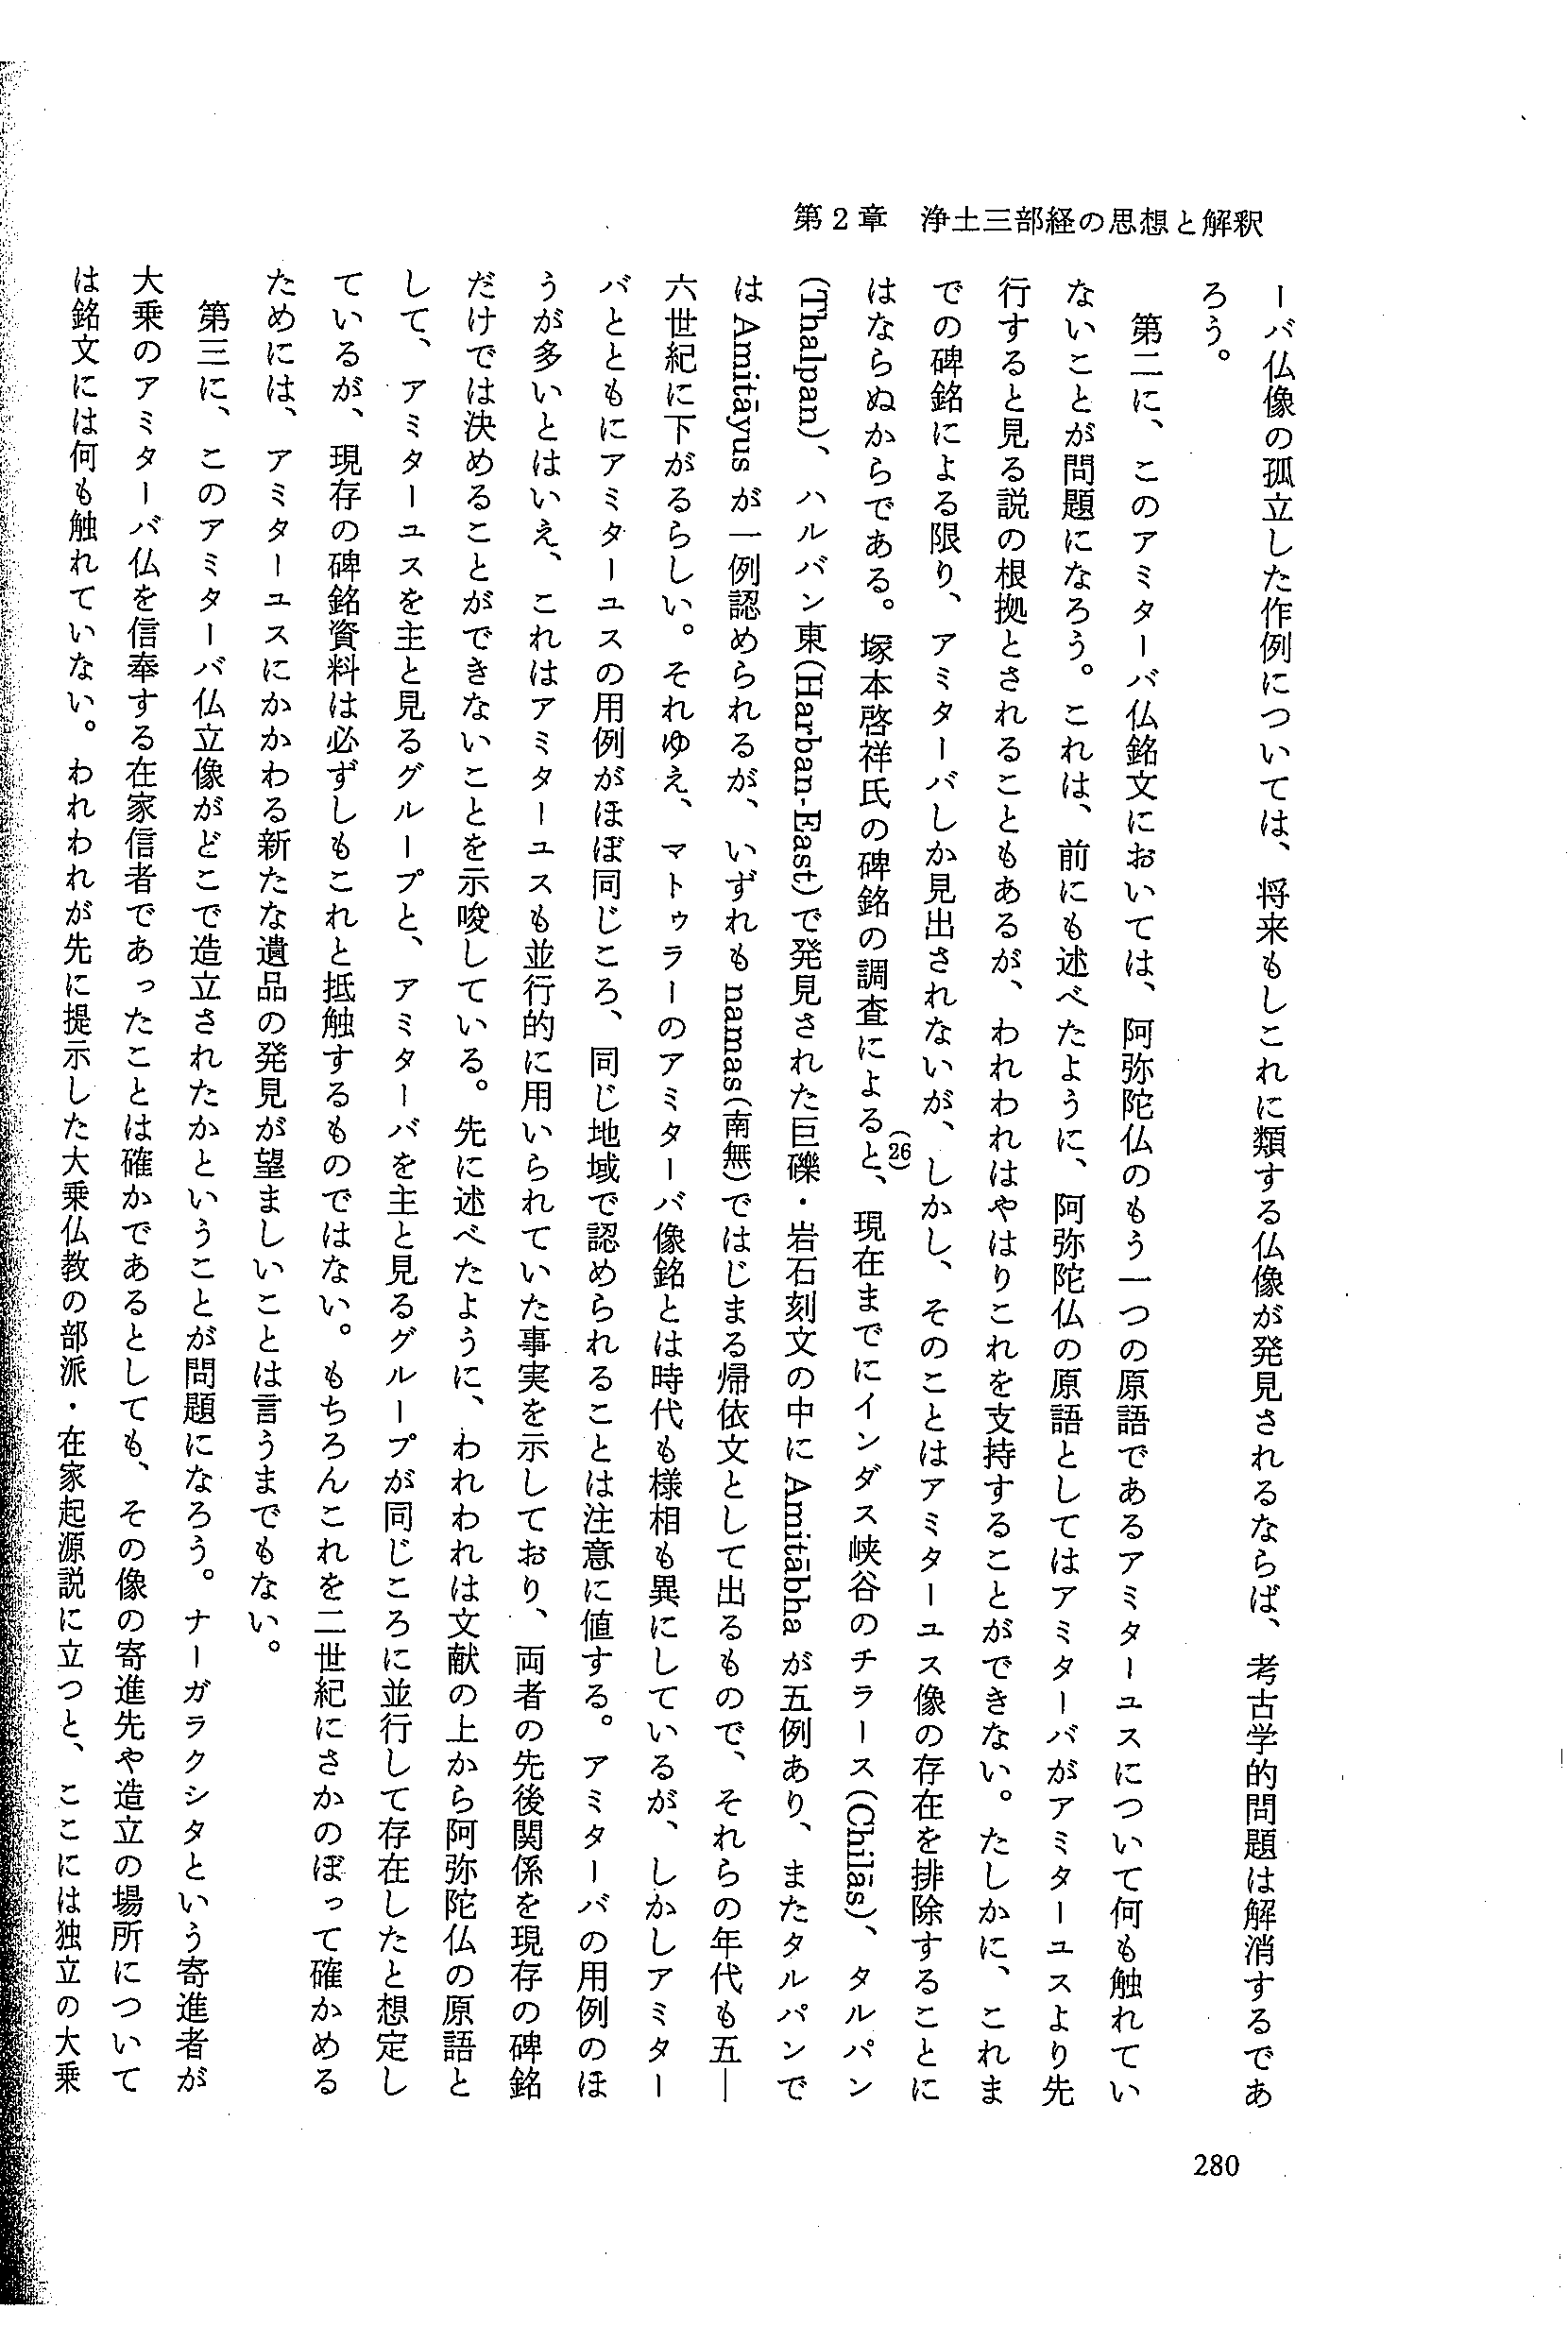 第2章　浄土三部経の思想と解釈
ーバ仏像の孤立した作例については、将来もしこれに類する仏像が発見されるならば、考古学的問題は解消するであ
ろう。
　第二に、このアミターバ仏銘文においては、阿弥陀仏のもう一つの原語であるアミターユスについて何も触れてい
ないことが問題になろう。これは、前にも述べたように、阿弥陀仏の原語としてはアミターバがアミターユスより先
行すると見る説の根拠とされることもあるが、われわれはやはりこれを支持することができない。たしかに、これま
での碑銘による限り、アミターバしか見出されないが、しかし、そのことはアミターユス像の存在を排除することに
はならぬからである。塚本啓祥氏の碑銘の調査によると(26)、現在までにインダス峡谷のチラース(Chilās)、タルパン
(Thalpan)、ハルバン東(Harban-East)で発見された巨礫・岩石刻文の中に Amitābha が五例あり、またタルパンで
は Amitāyus が一例認められるが、いずれも namas(南無)ではじまる帰依文として出るもので、それらの年代も五―
六世紀に下がるらしい。それゆえ、マトゥラーのアミターバ像銘とは時代も様相も異にしているが、しかしアミター
バとともにアミターユスの用例がほぼ同じころ、同じ地域で認められることは注意に値する。アミターバの用例のほ
うが多いとはいえ、これはアミターユスも並行的に用いられていた事実を示しており、両者の先後関係を現存の碑銘
だけでは決めることができないことを示唆している。先に述べたように、われわれは文献の上から阿弥陀仏の原語と
して、アミターユスを主と見るグループと、アミターバを主と見るグループが同じころに並行して存在したと想定し
ているが、現存の碑銘資料は必ずしもこれと抵触するものではない。もちろんこれを二世紀にさかのぼって確かめる
ためには、アミターユスにかかわる新たな遺品の発見が望ましいことは言うまでもない。
　第三に、このアミターバ仏立像がどこで造立されたかということが問題になろう。ナーガラクシタという寄進者が
大乗のアミターバ仏を信奉する在家信者であったことは確かであるとしても、その像の寄進先や造立の場所について
は銘文には何も触れていない。われわれが先に提示した大乗仏教の部派・在家起源説に立つと、ここには独立の大乗
280